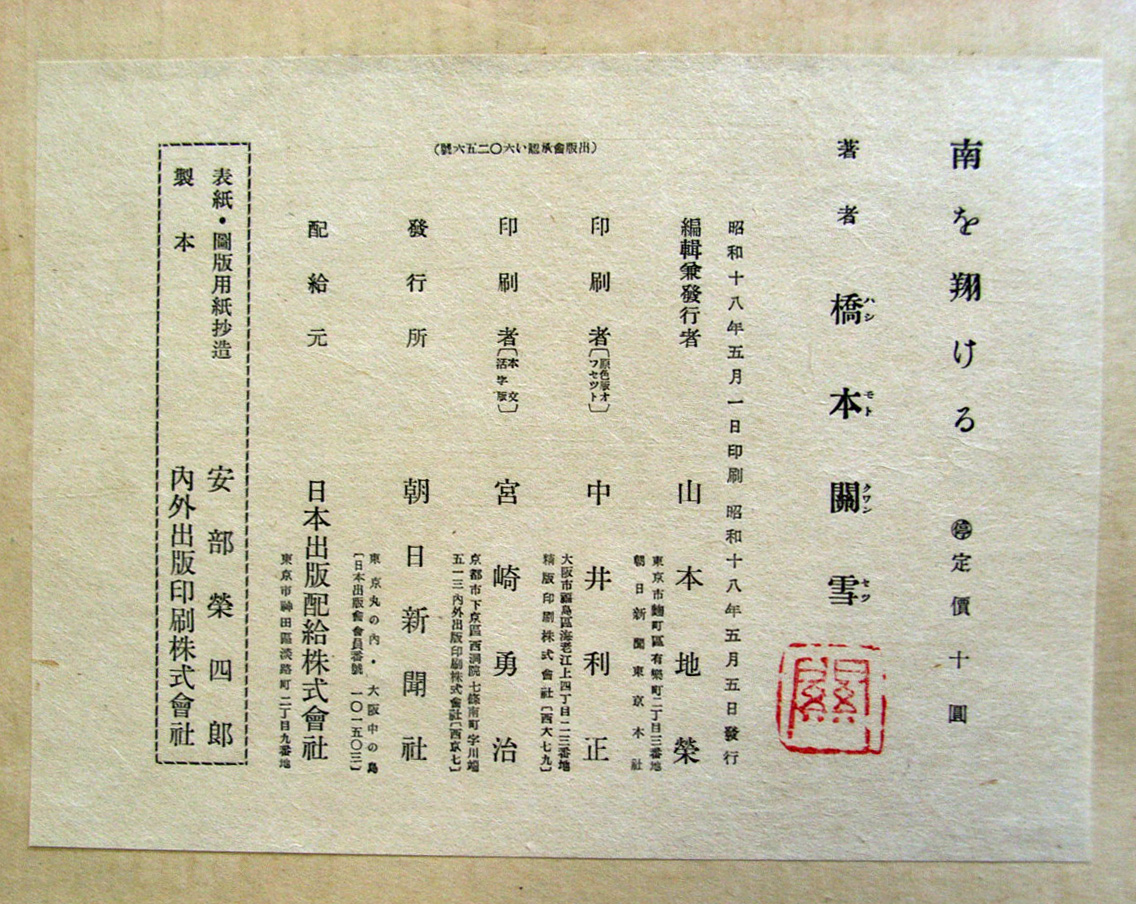 南を翔ける
㊡定價 十圓
著者 橋本關雪
ハシ モト クワン セツ
關
昭和十八年五月一日印刷 昭和十八年五月五日發行
編輯兼發行者 山本地榮
東京市麴町區有樂町二丁目三番地
朝日新聞東京本社
印刷者〔原色版オフセツト〕 中井利正
大阪市福島區海老江上四丁目二三番地
精版印刷株式會社〔西大七九〕
印刷者〔本文活字版〕 宮崎勇治
京都市下京區西洞院七條南町字川端
五一三內外出版印刷株式會社〔西京七〕
(出版會承認い六〇二五六號)
發行所 朝日新聞社
東京丸の內・大阪中の島
〔日本出版會會員番號 一〇一五〇三〕
配給元 日本出版配給株式會社
東京市神田區淡路町二丁目九番地
表紙・圖版用紙抄造 安部榮四郎
製本 內外出版印刷株式會社